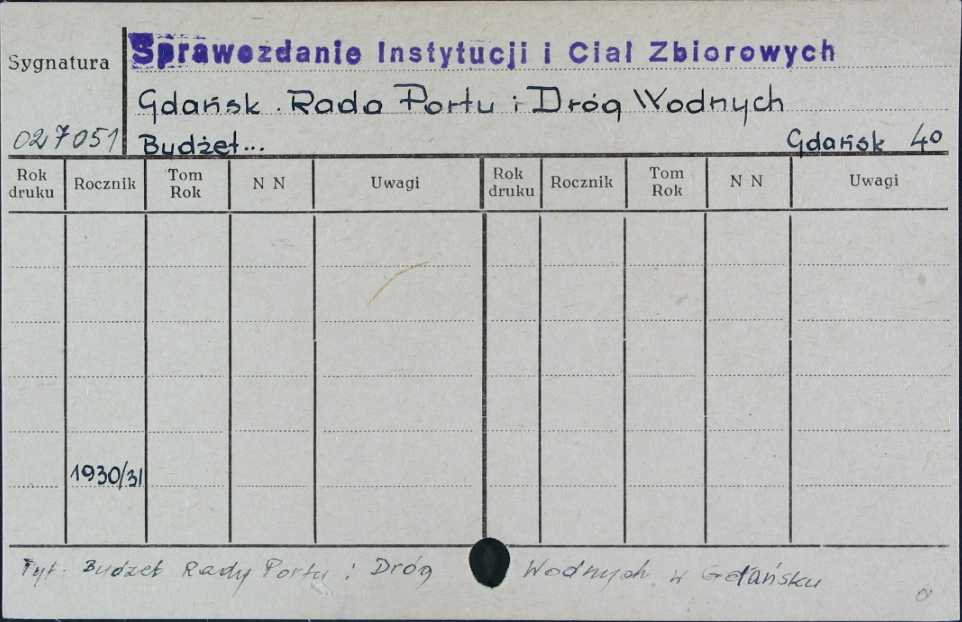 Sygnatura
Sprawozdanie Instytucji i Ciał Zbiorowych
Gdańsk. Rada Portu i Dróg Wodnych
027051 Budżet... Gdańsk 40
Rok druku Rocznik Tom Rok N N Uwagi Rok druku Rocznik Tom Rok N N Uwagi
1930/31
Tyt. Budżet Rady Portu i Dróg Wodnych w Gdańsku